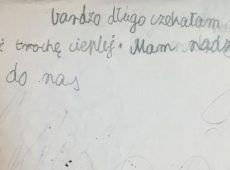 bardzo długo czekałam
ć trochę cieplej. Mam nadz
do nas